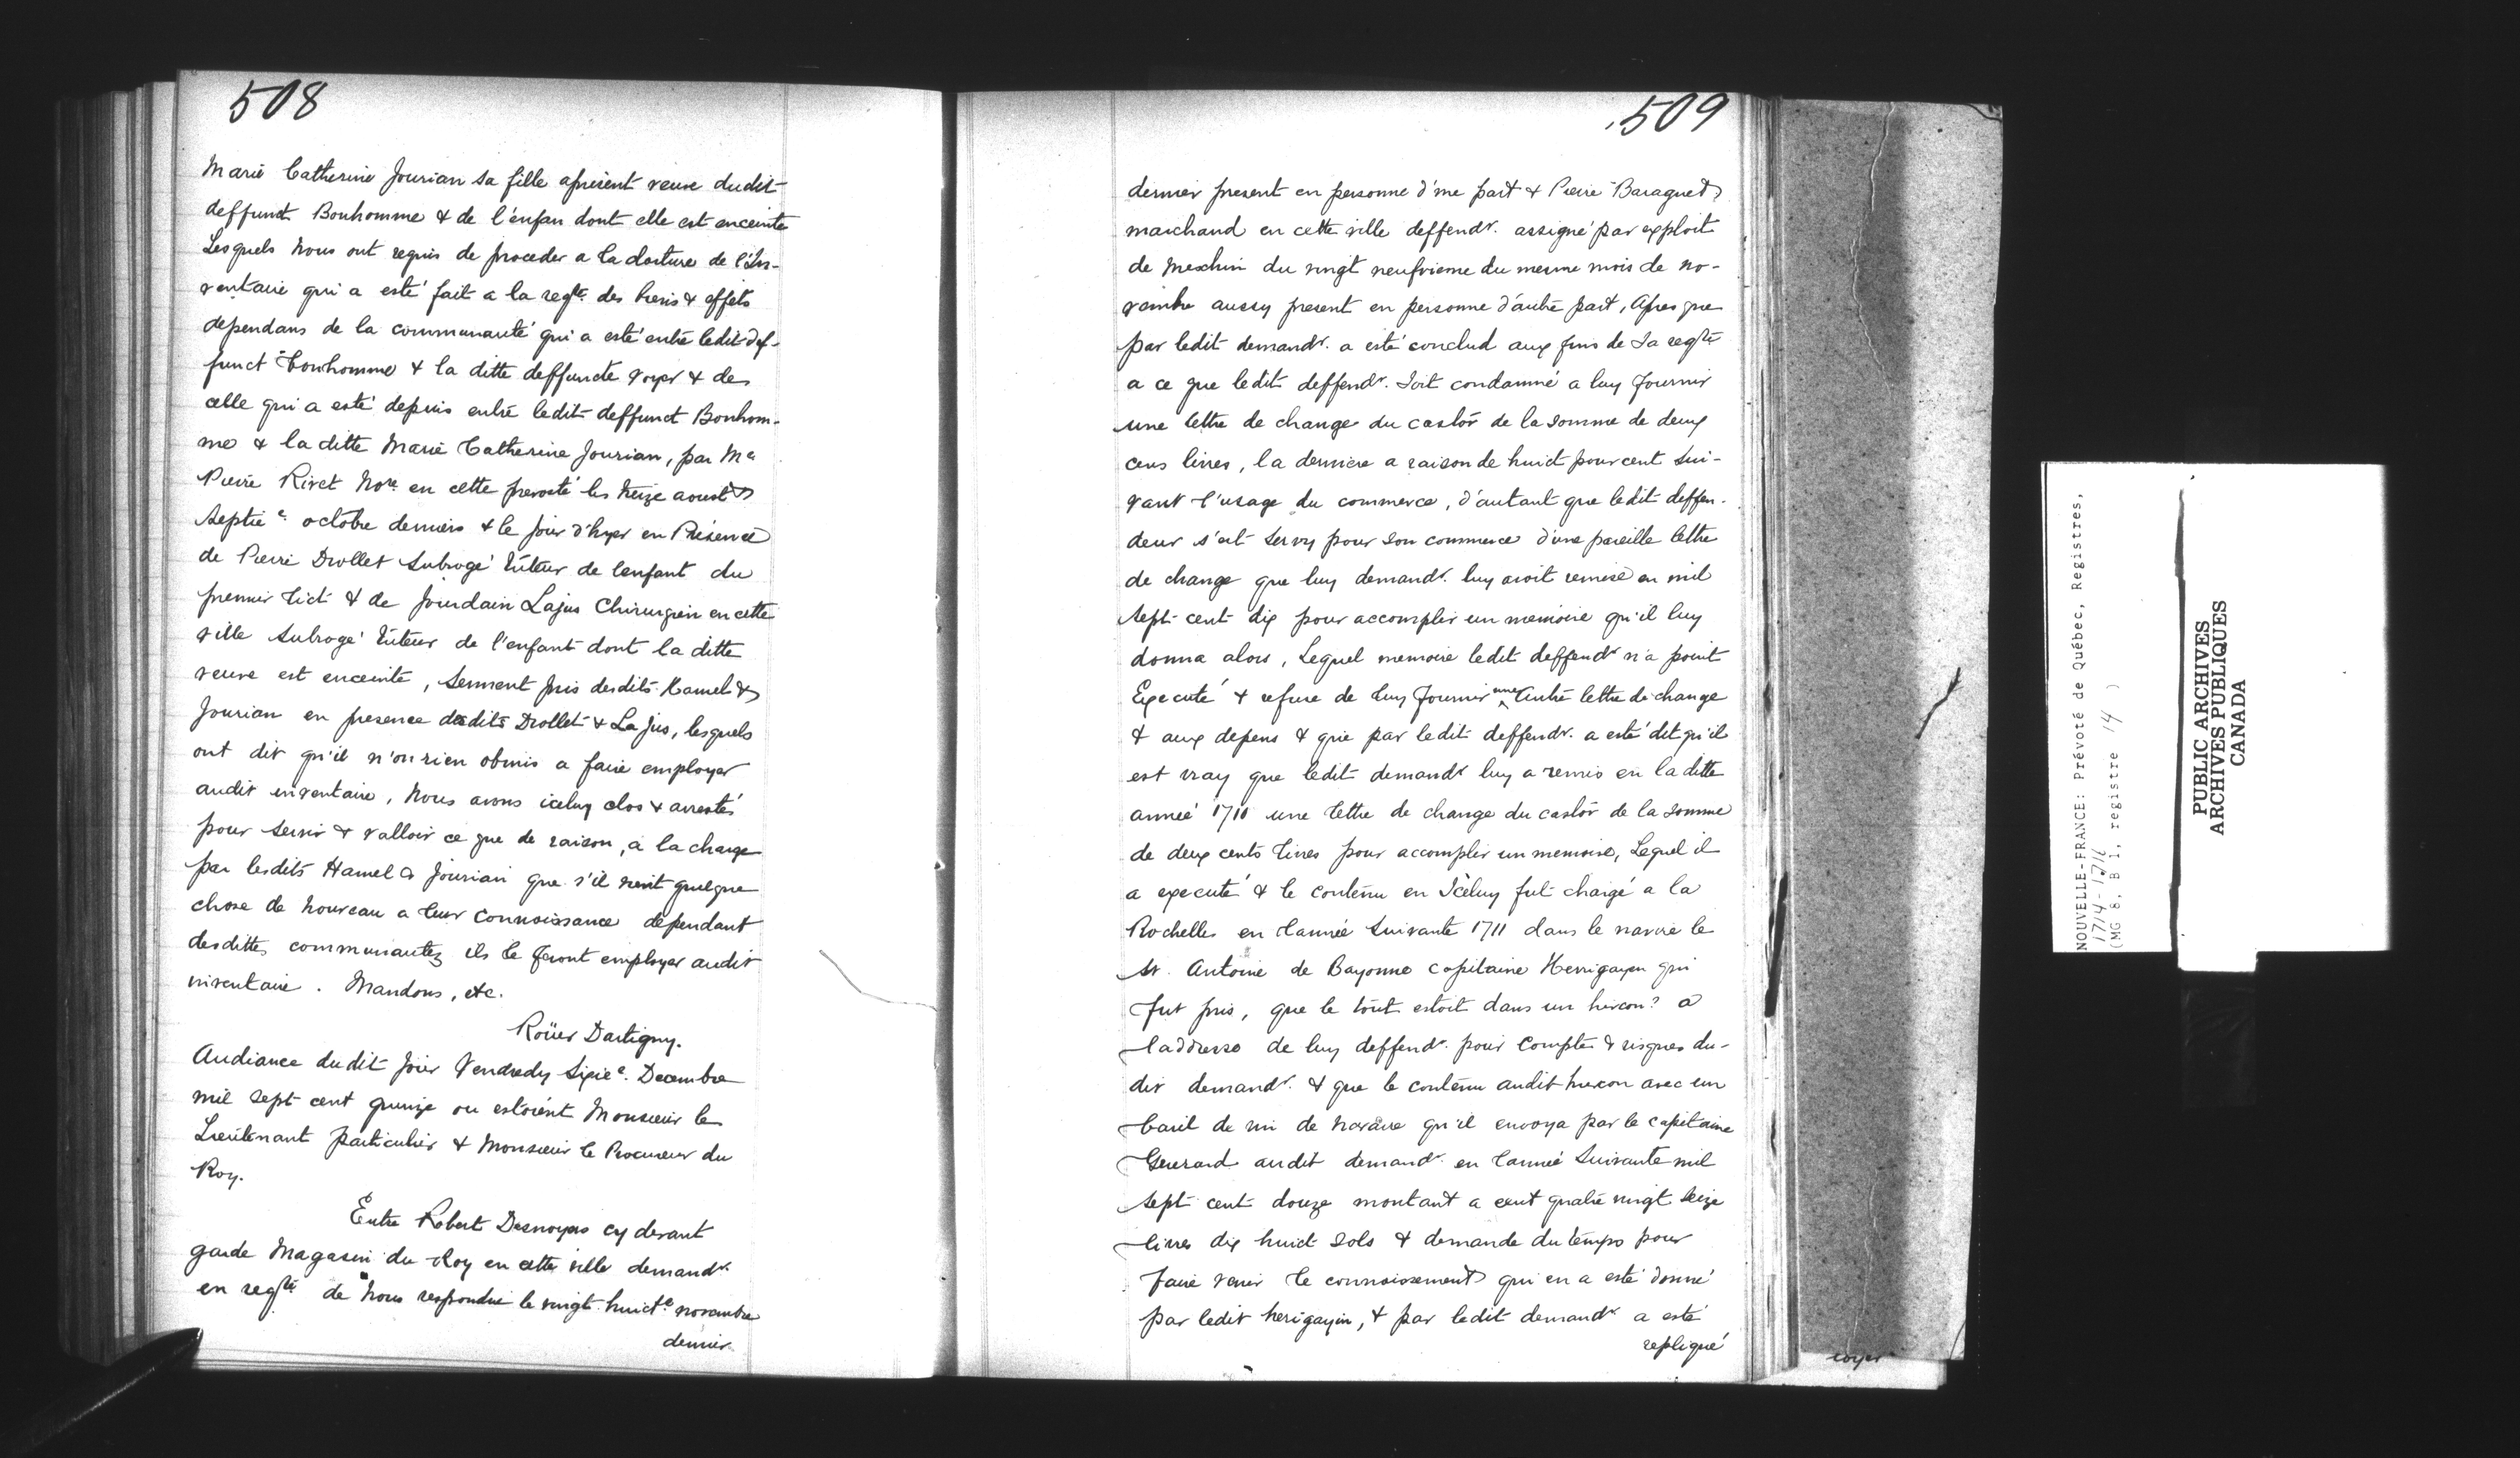 508
Marie Catherine Jourian sa fille apresent veuve dudit
deffunct Bonhomme & de l'enfan dont elle est enceinte
Lesquels Nous ont requis de proceder a la closture de l'In-
ventaire qui a esté fait a la reqte. des biens & effets
dependans de la communauté qui a esté entre ledit def-
funct bonhomme & la ditte deffuncte voyer & de
celle qui a esté depuis entre ledit deffunct Bonhom-
me & la ditte Marie Catherine Jourian, par Me
Pierre Rivet Nore. en cette prevosté les treize aoust &
septie. octobre derniers & le jour d'hyer en Présence
de Pierre Drollet Subrogé tuteur de lenfant du
premier lict & de Jourdain Lajus Chirurgien en cette
ville subrogé tuteur de l'enfant dont la ditte
veuve est enceinte, serment pris desdits Hamel &
Jourian en presence desdits Drollet & La Jus, lesquels
ont dit qu'il n'on rien obmis a faire employer
audit inventaire, Nous avons iceluy clos & arresté
pour servir & valloir ce que de raison, a la charge
par lesdits Hamel & Jourian que s'il vient quelque
chose de nouveau a leur connoissance dependant
desdittes communautez ils le feront employer audit
inventaire. Mandons, etc.
Roüer Dartigny.
Audiance dudit jour Vendredy sixie. Decembre
mil sept cent quinze ou estoient Monsieur le
Lieutenant particulier & Monsieur le Procureur du
Roy.
Entre Robert Desnoyers cy devant
garde Magasin du Roy en cette ville demandr.
en reqte de Nous respondue le vingt huicte. novembre
dernier
509
dernier present en personne d'une part & Pierre Baraguet
marchand en cette ville deffendr. assigné par exploit
de Meschin du vingt neufvieme du mesme mois de no-
vembre aussy present en personne d'autre part, Apres que
par ledit demandr. a esté conclud aux fins de sa reqte
a ce que ledit deffendr. soit condamné a luy fournir
une lettre de change du castor de la somme de deux
cens livres, la derniere a raison de huict pour cent sui-
vant l'usage du commerce, d'autant que ledit deffen-
deur s'est servy pour son commerce d'une pareille lettre
de change que luy demandr. luy avoit remise en mil
sept cent dix pour accomplir un memoire qu'il luy
donna alors, Lequel memoire ledit deffendr n'a point
Executé & refuse de luy fournir une autre lettre de change
& aux depens & que par ledit deffendr. a esté dit qu'il
est vray que ledit demandr luy a remis en la ditte
année 1710 une lettre de change du castor de la somme
de deux cents livres pour accomplir un memoire, Lequel il
a executé & le contenu en Iceluy fut chargé a la
Rochelle en l'année suivante 1711 dans le navire le
St. Antoine de Bayonne capitaine Herrigayen qui
fut pris, que le tout estoit dans un hixcon? a
l'addresse de luy deffendr. pour compte & risques du-
dit demandr. & que le contenu audit hixcon avec un
baril de vin de navarre qu'il envoya par le capitaine
Guerard audit demandr. en l'année suivante mil
sept cent douze montant a cent quatre vingt seize
livres dix huict sols & demande du temps pour
faire venir le connoissement qui en a esté donné
par ledit herigayin, & par ledit demandr a esté
repliqué
NOUVELLE-FRANCE: Prévoté de Québec, Registres,
1714-1716
(MG 8, B 1, registre 14 )
PUBLIC ARCHIVES
ARCHIVES PUBLIQUES
CANADA